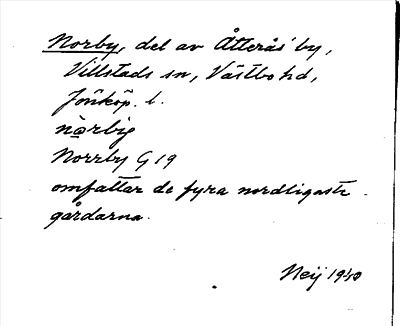 Norby, del av Åtterås' by,
Villstads sn, Västbo hd,
Jönköp. l.
nòrbig
Norrby G 19
omfattar de fyra nordligaste
gårdarna.
Neij 1940